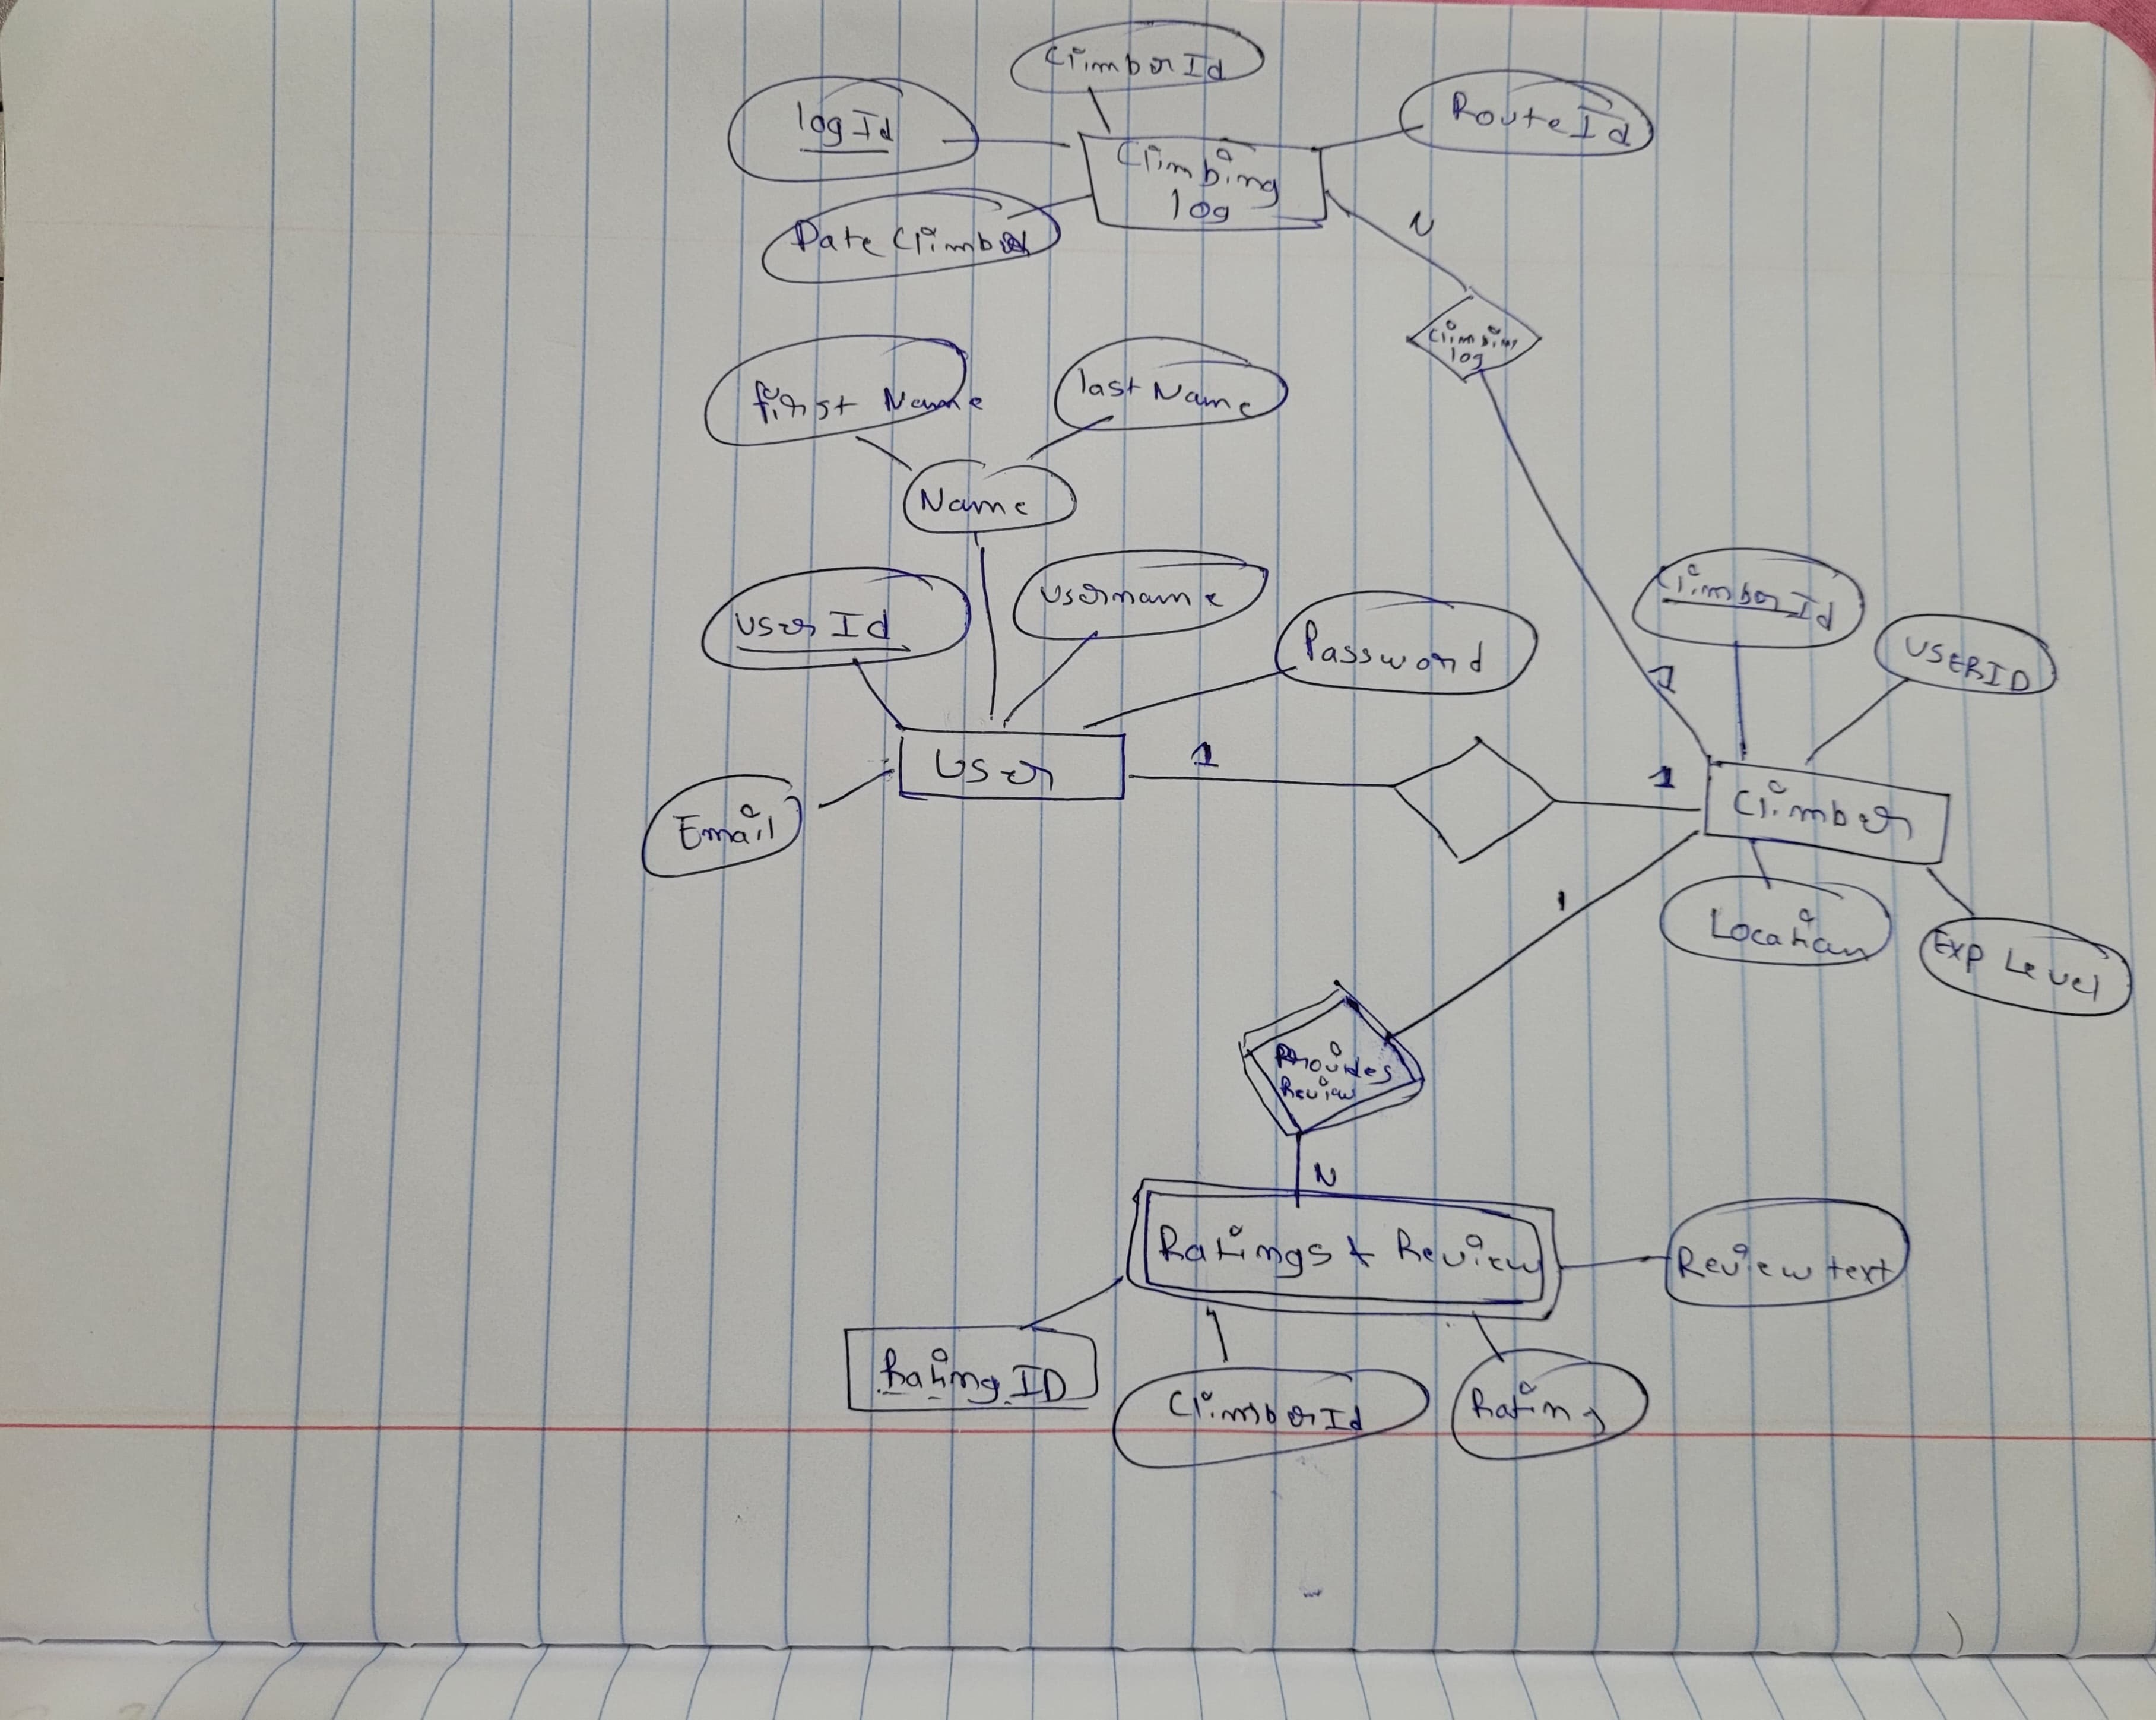 ClimberId
logId
RouteId
Climbing
log
Date Climbed
N
Climbing
log
first Name
last Name
Name
ClimberId
userId
username
Password
USERID
1
User
1
1
Climber
Email
1
Location
Exp Level
Provides
Review
N
Ratings & Review
Review text
Rating ID
ClimberId
Rating